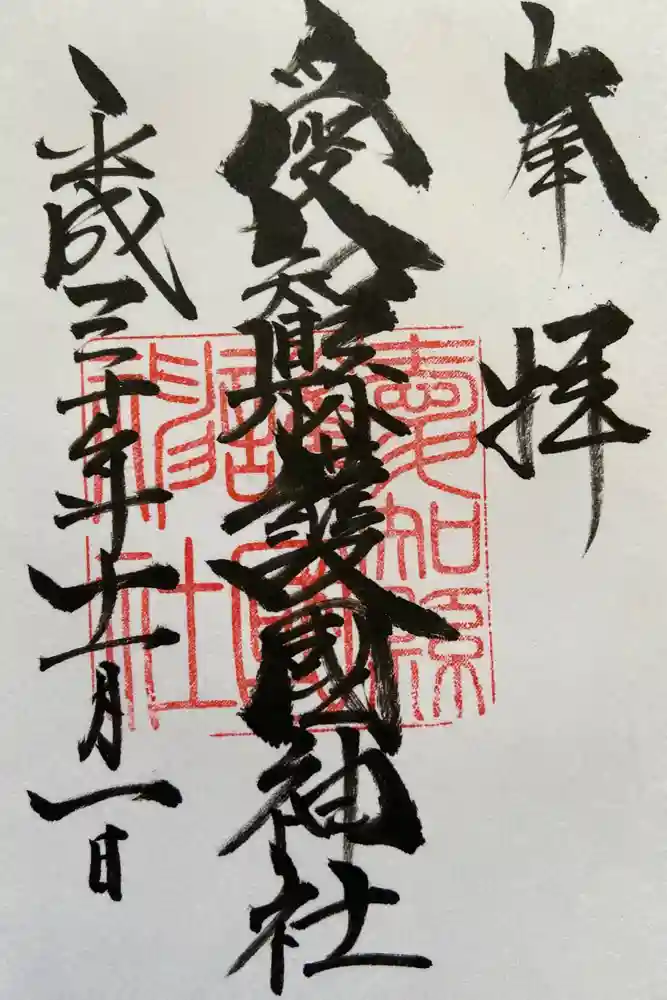 奉拝
愛知縣護國神社
愛知縣護國神社
平成三十年十一月一日